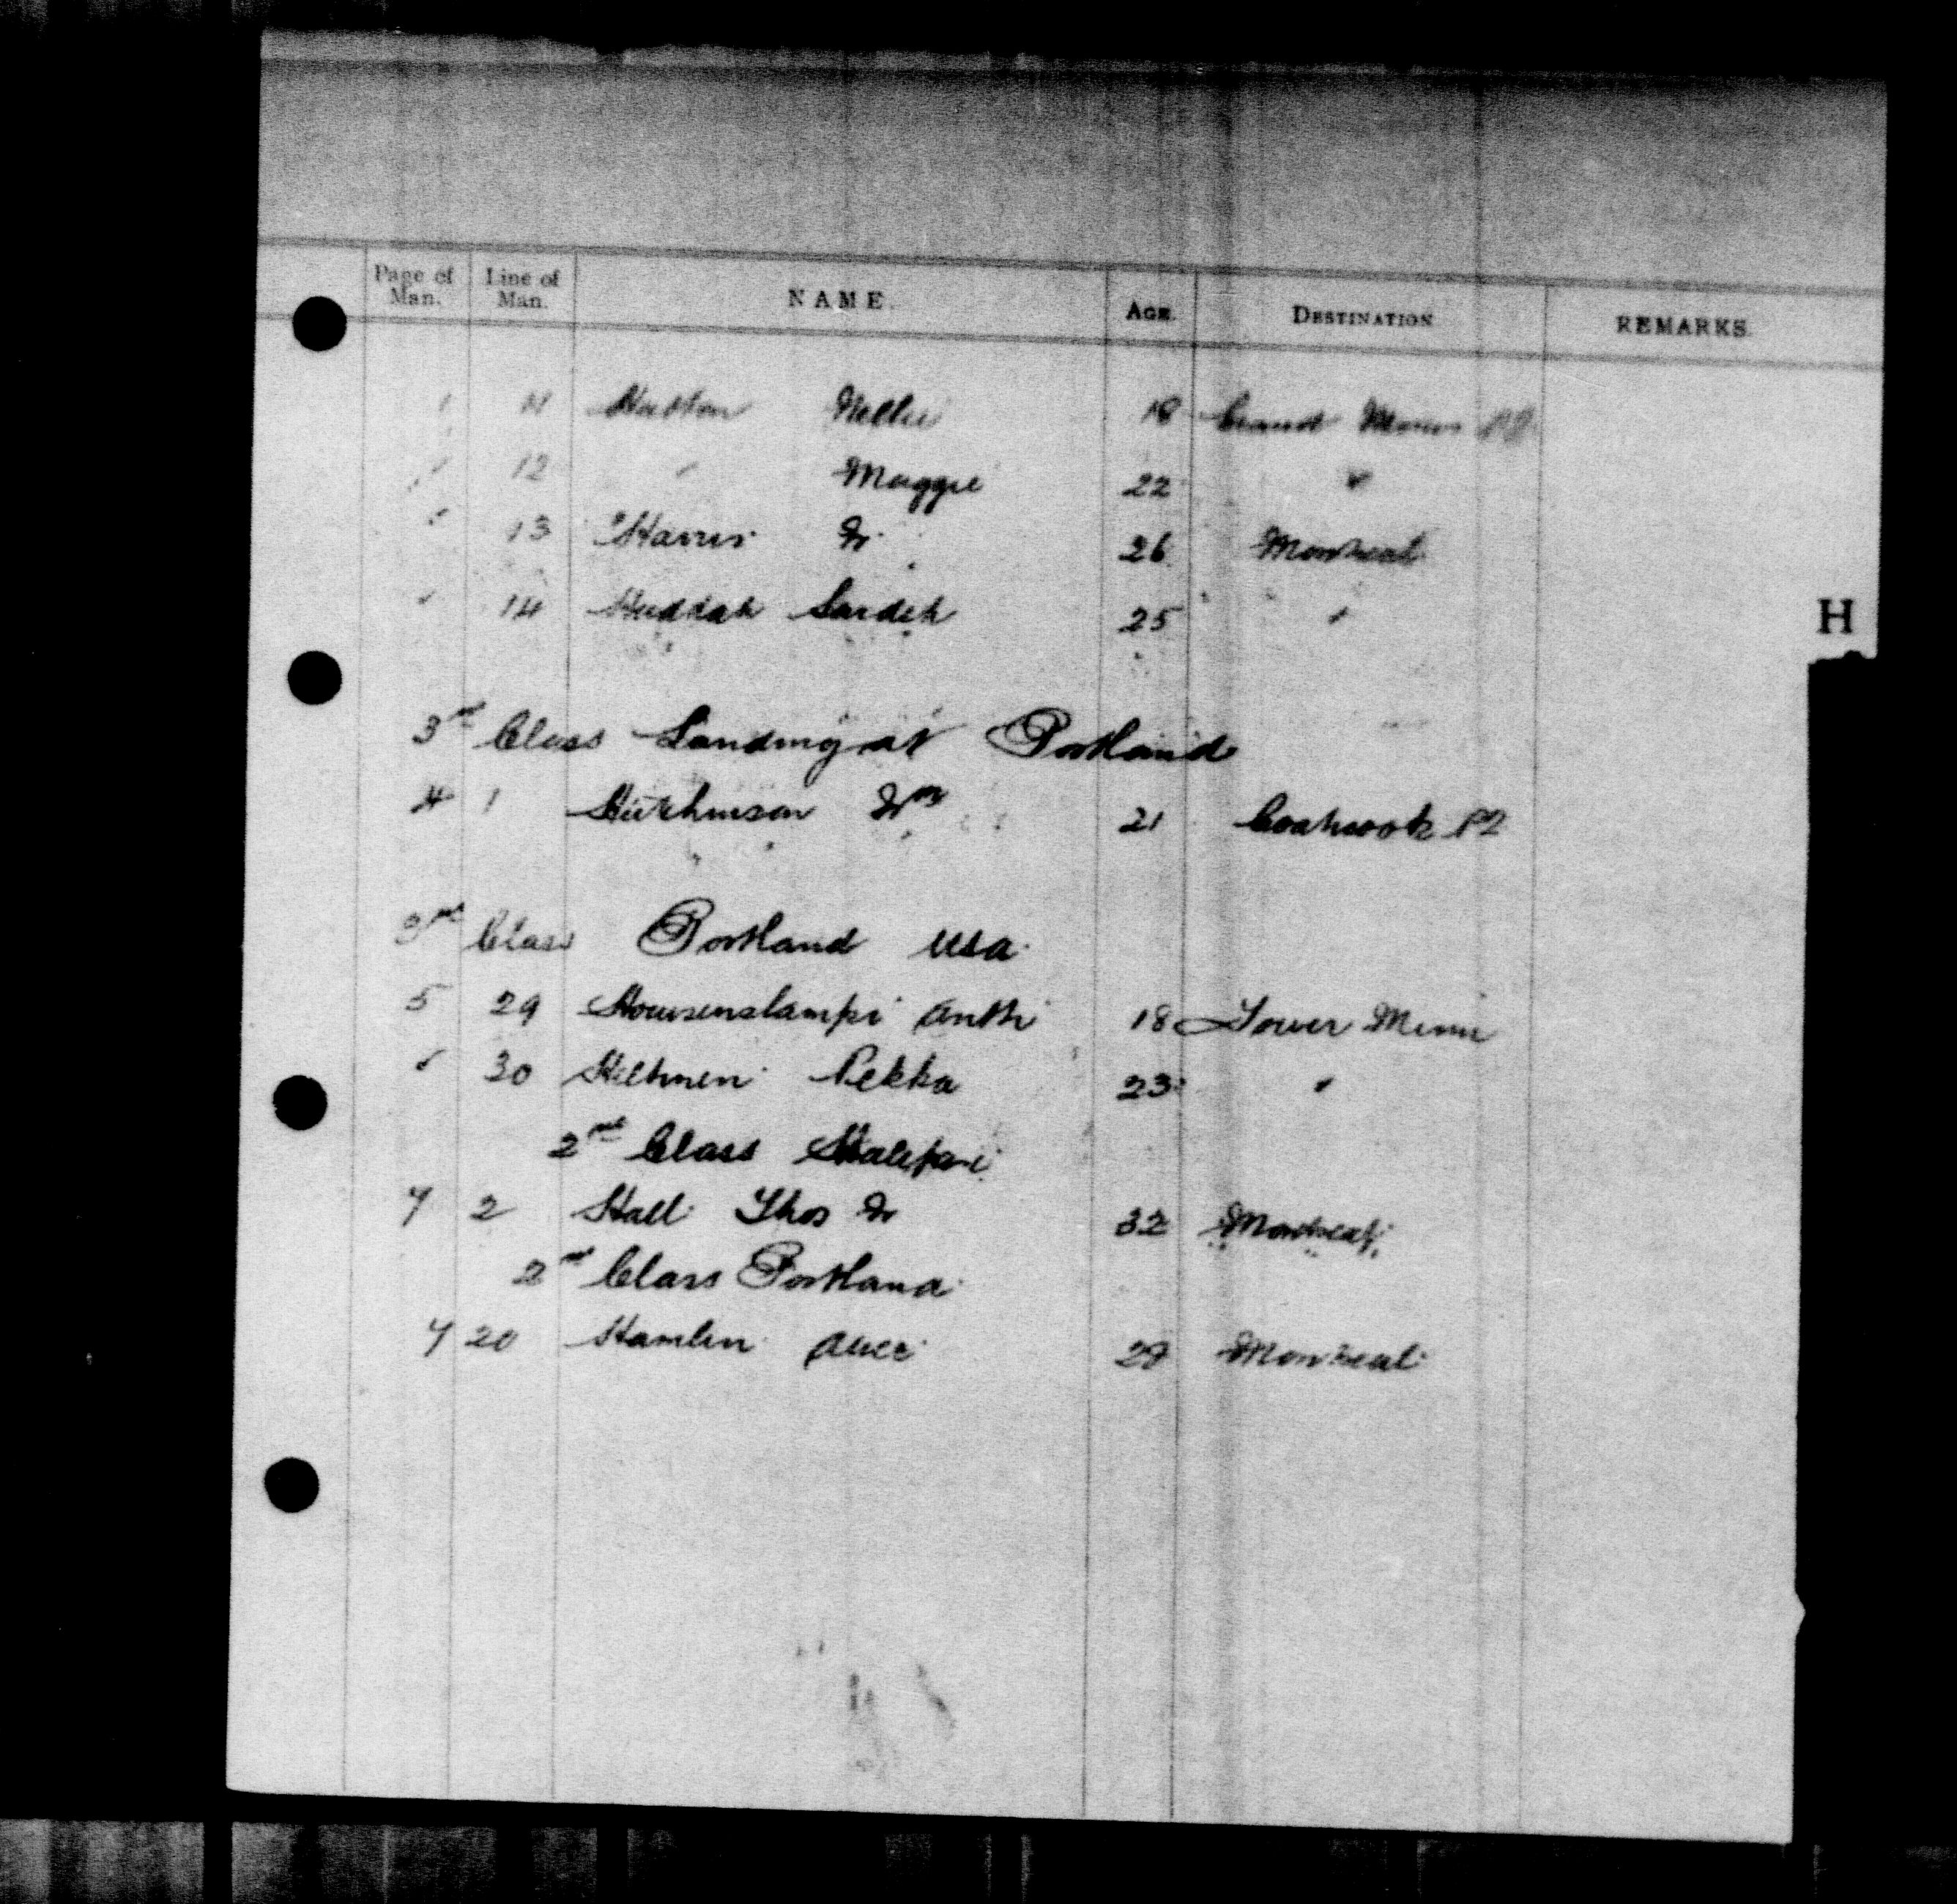 Page of Man. Line of Man. NAME. AGE. DESTINATION REMARKS.
1 11 Hutton Nellie 18 Grand
" 12 " Maggie 22 "
" 13 Harris W. 26 Montreal
" 14 Huddah 25 "
H
3rd Class Landing at Portland
4 1 Hutchinson Wm 21 Coaticook P2
3rd Class Portland USA
5 29 Antti 18 Tower Minn
" 30 Pekka 23 "
2nd Class Halifax
7 2 Hall Thos W 32 Montreal
2nd Class Portland
7 20 Hamlin Alice 29 Montreal